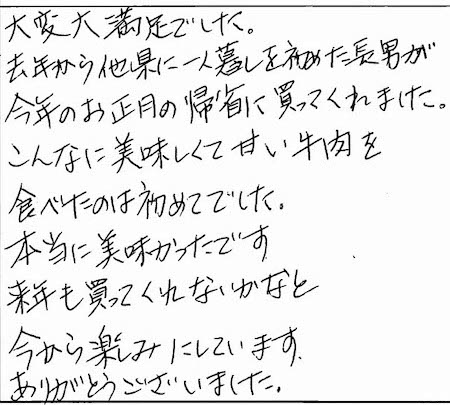 大変大満足でした。
去年から他県に一人暮しを初めた長男が
今年のお正月の帰省に買ってくれました。
こんなに美味しくて甘い牛肉を
食べたのは初めてでした。
本当に美味かったです
来年も買ってくれないかなと
今から楽しみにしています.
ありがとうございました。